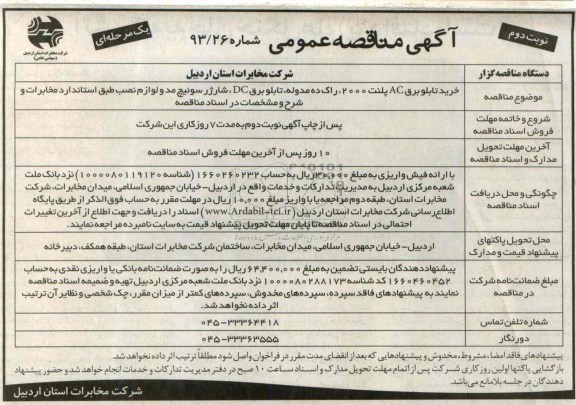 نوبت دوم
آگهی مناقصه عمومی شماره ۹۳/۲۶
یک مرحله‌ای
شرکت مخابرات استان اردبیل
(سهامی خاص)
دستگاه مناقصه گزار
شرکت مخابرات استان اردبیل
موضوع مناقصه
خرید تابلو برق AC پلنت ۲۰۰۰، راک ده مدوله، تابلو برق DC، شارژر سوئیچ مد و لوازم نصب طبق استاندارد مخابرات و
شرح و مشخصات در اسناد مناقصه
شروع و خاتمه مهلت
فروش اسناد مناقصه
پس از چاپ آگهی نوبت دوم به مدت ۷ روز کاری این شرکت
آخرین مهلت تحویل
مدارک و اسناد مناقصه
۱۰ روز پس از آخرین مهلت فروش اسناد مناقصه
چگونگی و محل دریافت
اسناد مناقصه
با ارائه فیش واریزی به مبلغ ۳۰،۰۰۰ ریال به حساب ۱۶۶۰۲۶۰۲۳۲ (شناسه ۱۰۰۰۰۸۰۱۱۹۱۲۰) نزد بانک ملت
شعبه مرکزی اردبیل به مدیریت تدارکات و خدمات واقع در اردبیل- خیابان جمهوری اسلامی، میدان مخابرات، شرکت
مخابرات استان، طبقه دوم مراجعه یا با واریز مبلغ ۱۰،۰۰۰ ریال در مهلت مقرر به حساب فوق الذکر از طریق پایگاه
اطلاع رسانی شرکت مخابرات استان اردبیل (www.Ardabil-tci.ir) اسناد را دریافت و جهت اطلاع از آخرین تغییرات
احتمالی در اسناد مناقصه تا پایان مهلت تحویل پیشنهاد قیمت به سایت نامبرده مراجعه نمایند.
محل تحویل پاکتهای
پیشنهاد قیمت و مدارک
اردبیل- خیابان جمهوری اسلامی، میدان مخابرات، ساختمان شرکت مخابرات استان، طبقه همکف، دبیرخانه
مبلغ ضمانت‌نامه شرکت
در مناقصه
پیشنهاد دهندگان بایستی تضمین به مبلغ ۶۴،۴۰۰،۰۰۰ ریال را به صورت ضمانت‌نامه بانکی یا واریزی نقدی به حساب
۱۶۶۰۴۶۰۴۵۲ کد شناسه ۱۰۰۰۰۸۰۲۸۸۱۷۳ نزد بانک ملت شعبه مرکزی اردبیل تهیه و ضمیمه اسناد مناقصه
نمایند به پیشنهادهای فاقد سپرده، سپرده‌های مخدوش، سپرده‌های کمتر از میزان مقرر، چک شخصی و نظایر آن ترتیب
اثر داده نخواهد شد.
شماره تلفن تماس
۰۴۵-۳۳۳۶۴۴۱۸
دورنگار
۰۴۵-۳۳۳۶۳۵۵۵
پیشنهادهای فاقد امضاء، مشروط، مخدوش و پیشنهادهایی که بعد از انقضای مدت مقرر در فراخوان واصل شود مطلقاً ترتیب اثر داده نخواهد شد.
بازگشایی پاکتها اولین روز کاری شرکت پس از اتمام مهلت تحویل مدارک و اسناد ساعت ۱۰ صبح در دفتر مدیریت تدارکات و خدمات انجام خواهد شد و حضور پیشنهاد
دهندگان در جلسه بلامانع می‌باشد.
شرکت مخابرات استان اردبیل